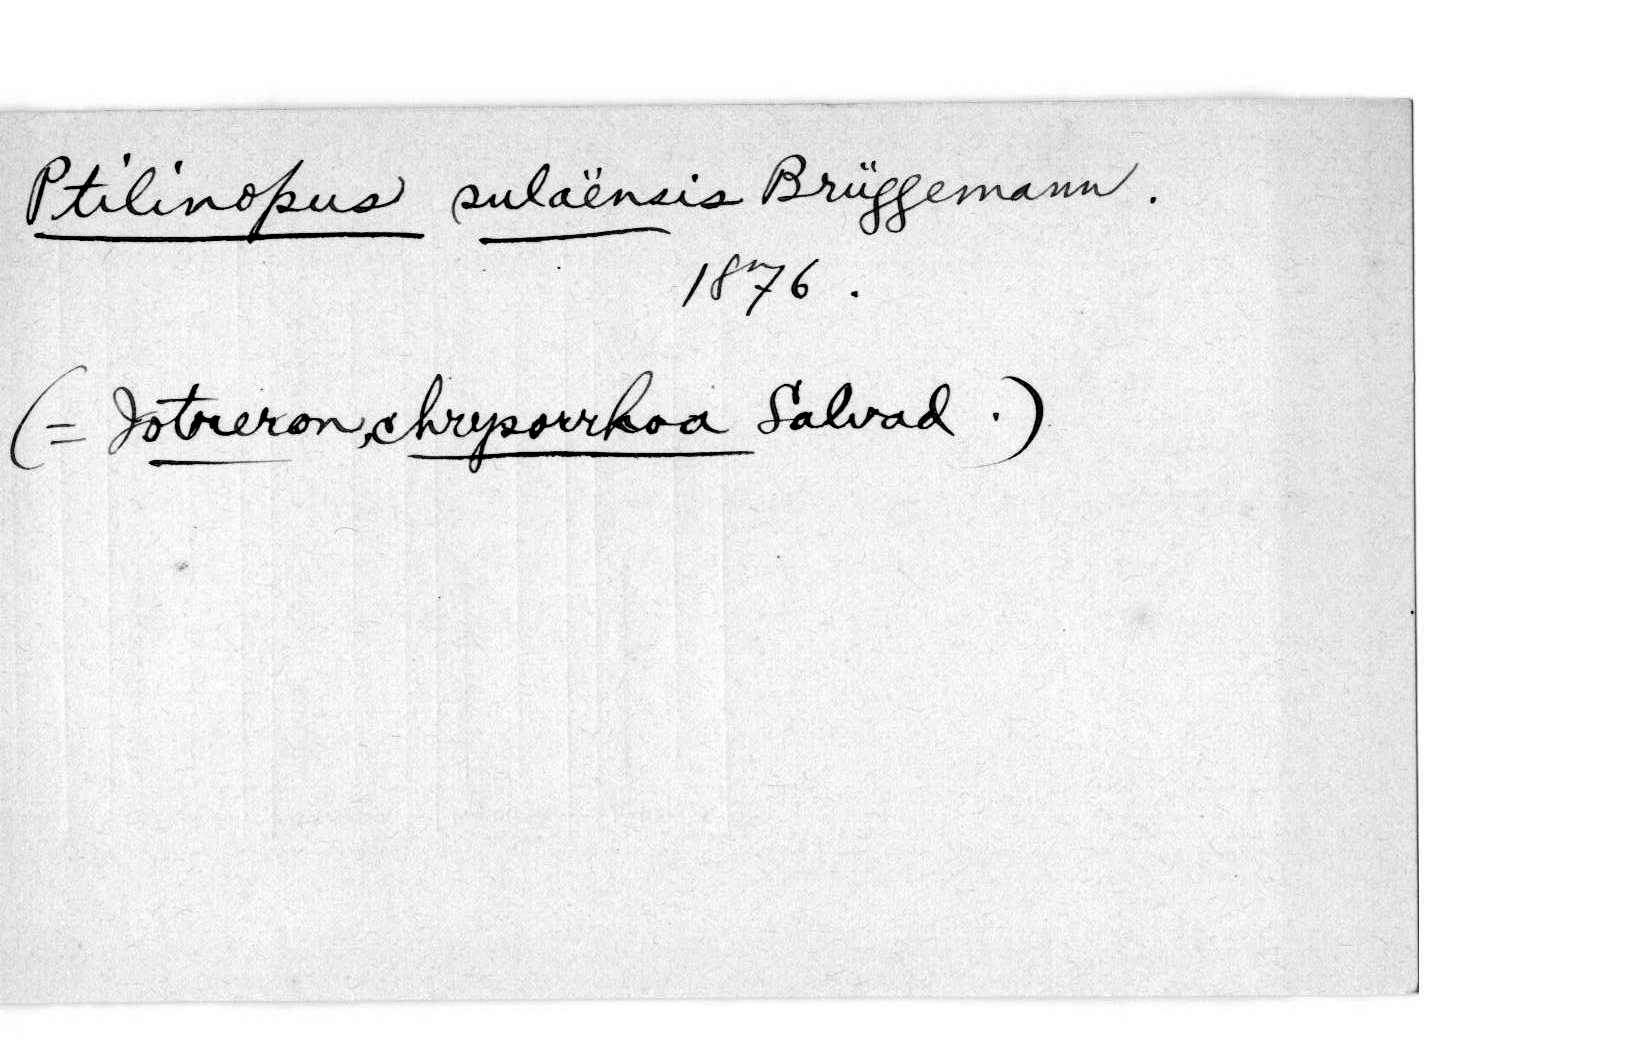 Ptilinopus sulaënsis Brüggemann.
1876.
(= Jotreron chrysorrhoa Salvad.)